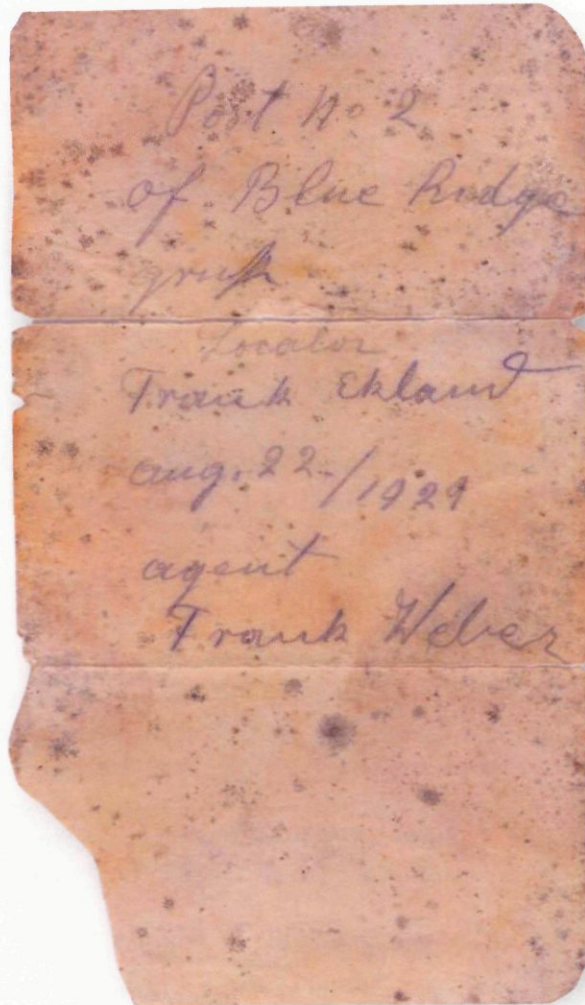 Post No 2
of Blue Ridge
Locator
Frank Ekland
aug. 22-/1929
agent
Frank Weber